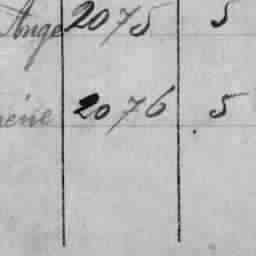 Ange 2075 5
2076 5